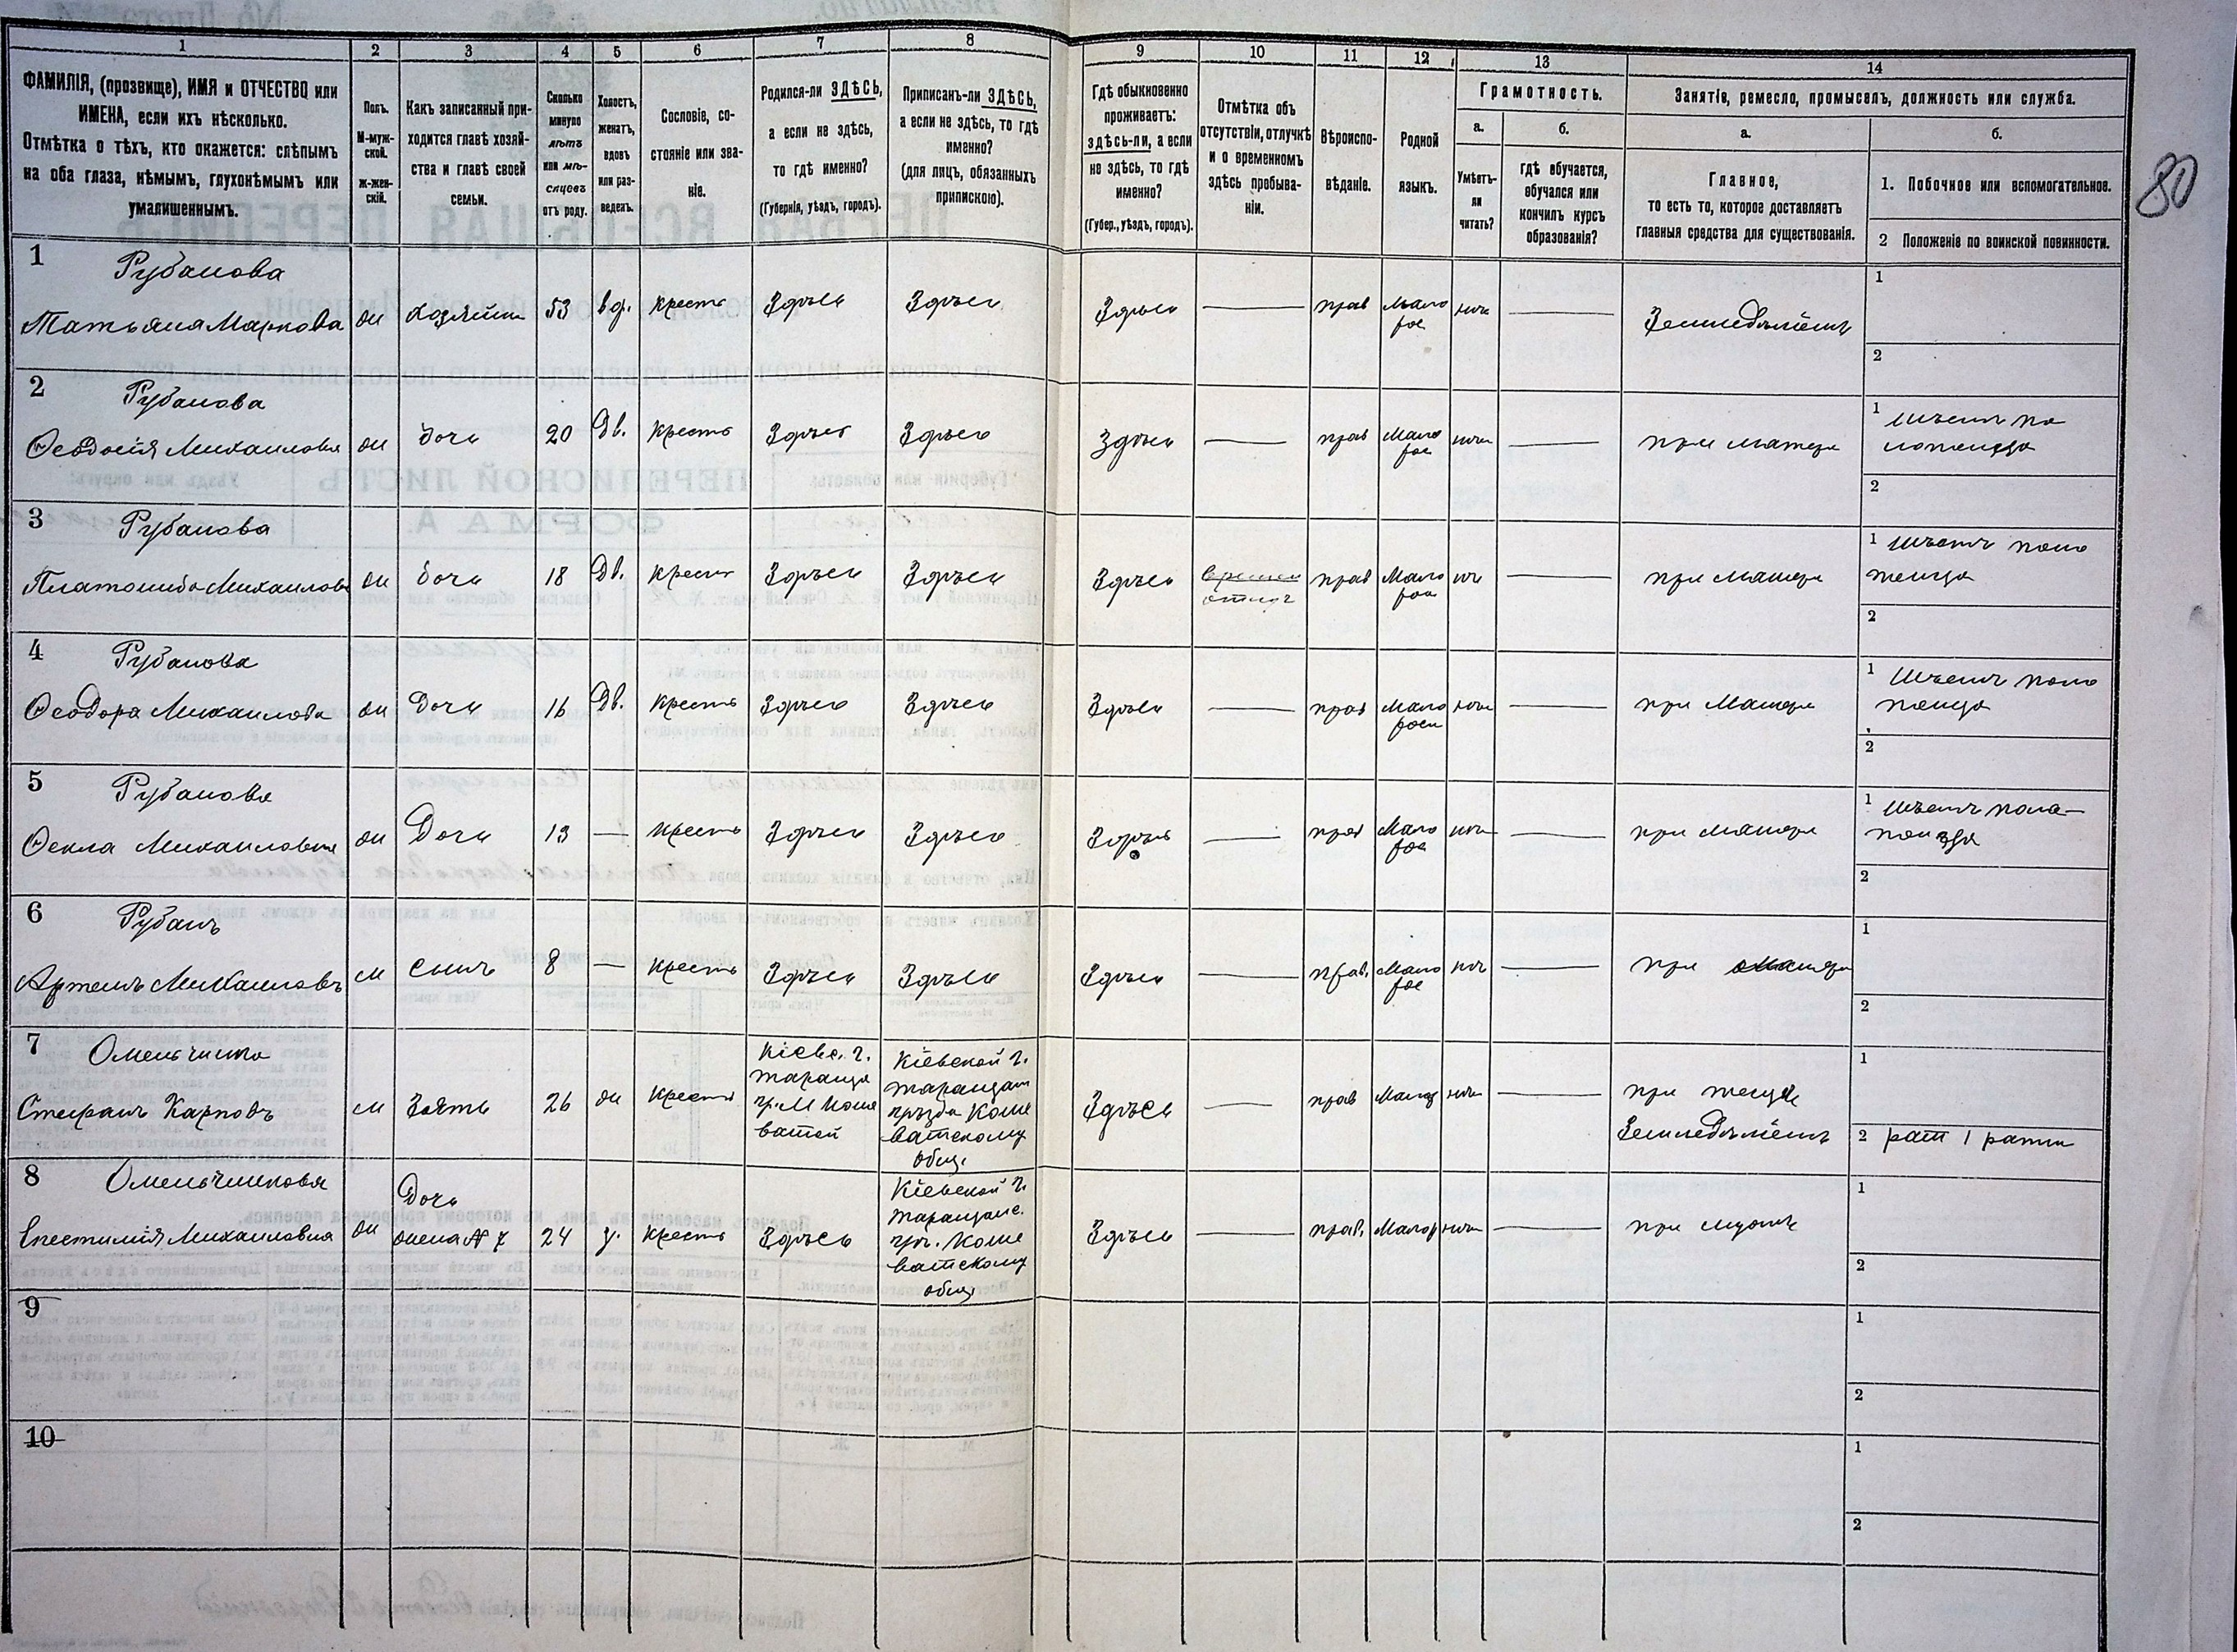 1 2 3 4 5 6 7 8 9 10 11 12 13 14
ФАМИЛІЯ, (прозвище), ИМЯ и ОТЧЕСТВО или
ИМЕНА, если ихъ нѣсколько.
Отмѣтка о тѣхъ, кто окажется: слѣпымъ
на оба глаза, нѣмымъ, глухонѣмымъ или
умалишеннымъ.
Полъ.
М-муж-
ской.
ж-жен-
скій.
Какъ записанный при-
ходится главѣ хозяй-
ства и главѣ своей
семьи.
Сколько
минуло
лѣтъ
или мѣ-
сяцевъ
отъ роду.
Холостъ,
женатъ,
вдовъ
или раз-
веденъ.
Сословіе, со-
стояніе или зва-
ніе.
Родился-ли ЗДѢСЬ,
а если не здѣсь,
то гдѣ именно?
(Губернія, уѣздъ, городъ).
Приписанъ-ли ЗДѢСЬ,
а если не здѣсь, то гдѣ
именно?
(для лицъ, обязанныхъ
припискою).
Гдѣ обыкновенно
проживаетъ:
здѣсь-ли, а если
не здѣсь, то гдѣ
именно?
(Губер., уѣздъ, городъ).
Отмѣтка объ
отсутствіи, отлучкѣ
и о временномъ
здѣсь пребыва-
ніи.
Вѣроиспо-
вѣданіе.
Родной
языкъ.
Грамотность.
а.
Умѣетъ-
ли
читать?
б.
гдѣ обучается,
обучался или
кончилъ курсъ
образованія?
Занятіе, ремесло, промыселъ, должность или служба.
а.
Главное,
то есть то, которое доставляетъ
главныя средства для существованія.
б.
1. Побочное или вспомогательное.
2 Положеніе по воинской повинности.
80
1 Рубанова
Татьяна Маркова ж хозяйка 53 вд. крестъ Здѣсь Здѣсь Здѣсь — прав Мало рос нѣтъ — Земледѣліемъ
1
2
2 Рубанова
Ѳеодосія Михаиловна ж дочь 20 Дв. крестъ Здѣсь Здѣсь Здѣсь — прав Мало рос нѣтъ — при матери
1
2
3 Рубанова
ж дочь 18 Дв. крест Здѣсь Здѣсь Здѣсь прав Мало рос нѣ — при матери
1
2
4 Рубанова
Ѳеодора Михаилова ж Дочь 16 Дв. крестъ Здѣсь Здѣсь Здѣсь — прав Мало росс нѣтъ — при Матери
1
2
5 Рубанова
Ѳекла Михаиловна ж Дочь 13 — крестъ Здѣсь Здѣсь Здѣсь — прав Мало рос нѣтъ — при матери
1
2
6 Рубанъ
Артемъ Михаиловъ м сынъ 8 — крестъ Здѣсь Здѣсь Здѣсь — прав. Мало рос нѣтъ — при матери
1
2
7
Стефанъ Карповъ м Зять 26 ж крестъ
Кіевс. г.
Таращ
у. М Коше
ватой
Кіевской г.
Таращан
уѣзда Коше
ватскому
общ.
Здѣсь — прав Малор нѣтъ —
при тещѣ
Земледѣліемъ
1
2
8 Омельчинкова
Михаиловна ж
Дочь
жена № 7
24 з. крестъ Здѣсь
Кіевской г.
Таращанс.
уѣ. Коше
ватскому
общ
Здѣсь — прав. Малор нѣтъ — при мужѣ
1
2
9
1
2
10
1
2